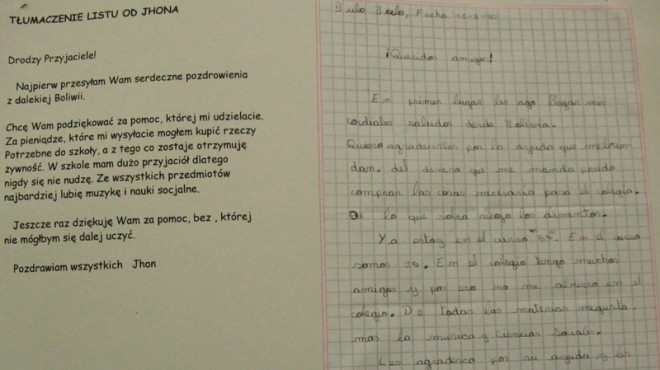 TŁUMACZENIE LISTU OD JHONA
Drodzy Przyjaciele!
Najpierw przesyłam Wam serdeczne pozdrowienia
z dalekiej Boliwii.
Chcę Wam podziękować za pomoc, której mi udzielacie.
Za pieniądze, które mi wysyłacie mogłem kupić rzeczy
Potrzebne do szkoły, a z tego co zostaje otrzymuję
żywność. W szkole mam dużo przyjaciół dlatego
nigdy się nie nudzę. Ze wszystkich przedmiotów
najbardziej lubię muzykę i nauki socjalne.
Jeszcze raz dziękuję Wam za pomoc, bez , której
nie mógłbym się dalej uczyć.
Pozdrawiam wszystkich Jhon
Bulo Bulo, Fecha
¡Queridos amigos!
En primer lugar les ago llegar mis
cordiales saludos desde Bolivia.
Quiero agradecerles por la ayuda que me
dan. del dinero que me manda puedo
comprar las cosas necesaria para el colegio.
lo que sobra recojo los alimentos.
Ya estoy en el curso En el curso
somos En el colegio tengo muchos
amigos y por eso no me aburro en el
colegio. De todas las materias megusta
mas la musica y Ciencias Sociales.
Les agradesco por su ayuda y